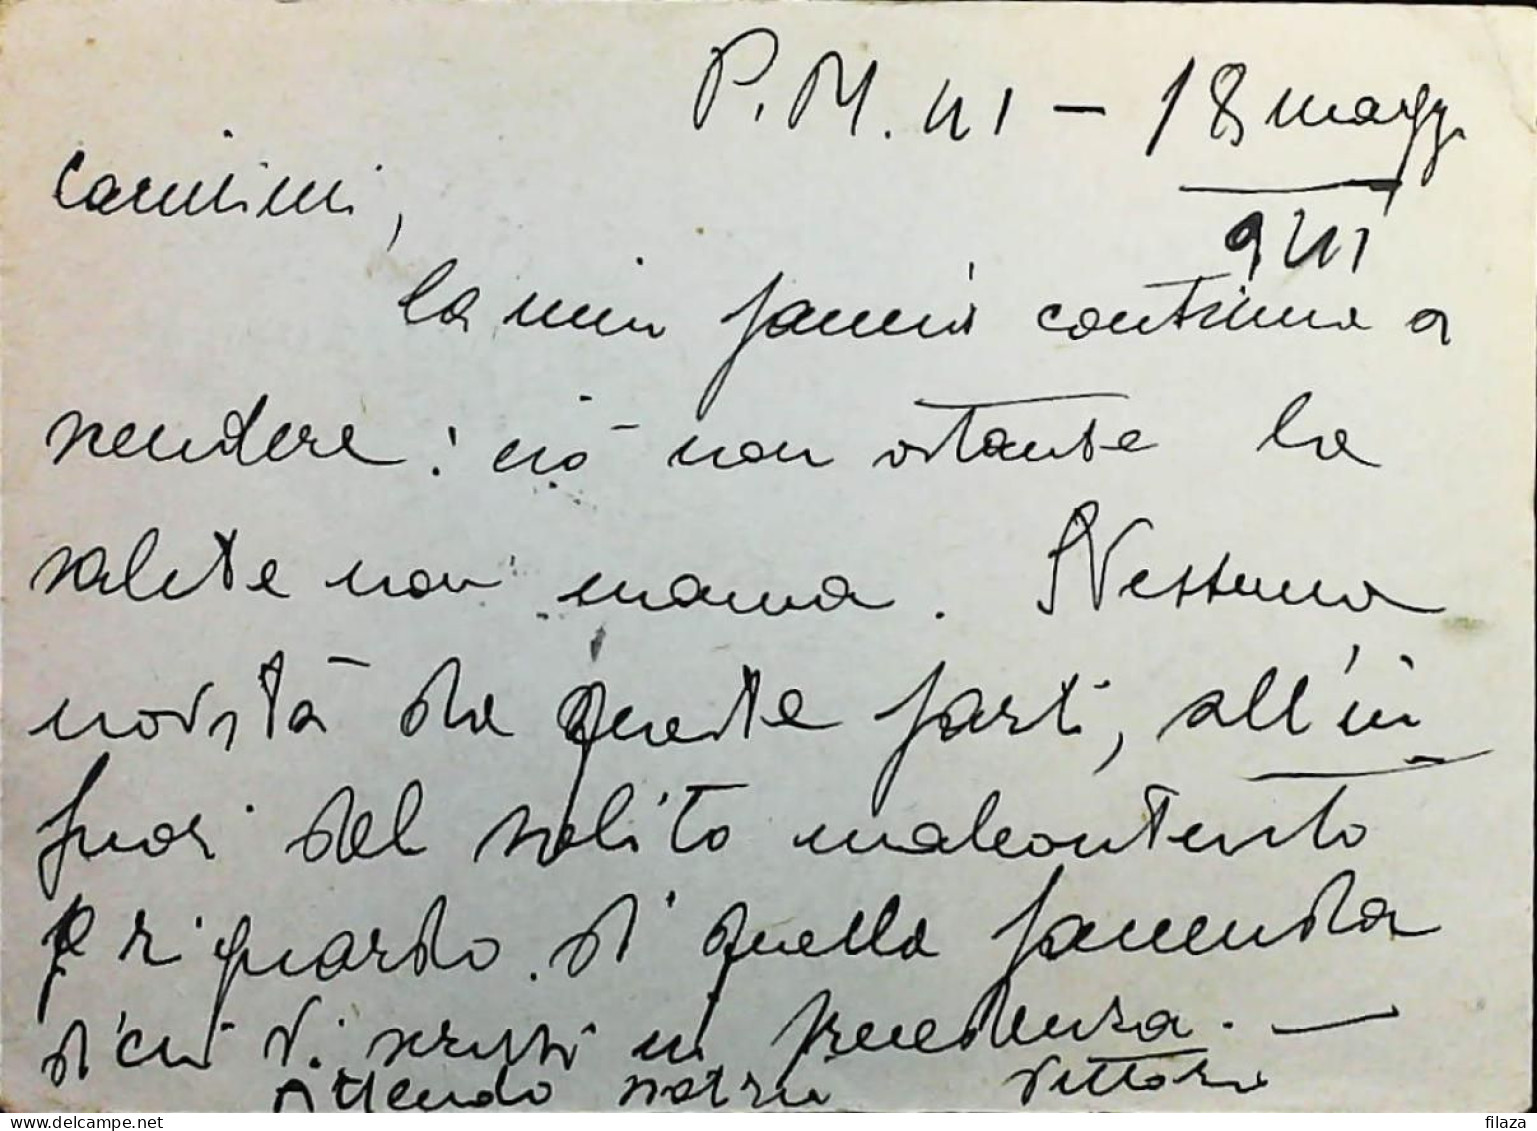 P.M. 41 – 18 magg.
941
Carissimi,
la mia continua a
scendere: ciò non ostante la
salute non manca. Nessuna
novità da queste parti, all'in
fuori del solito malcontento
riguardo di quella faccenda
di cui Vi scrissi in precedenza. —
Attendo notizie Vittorio
filaza